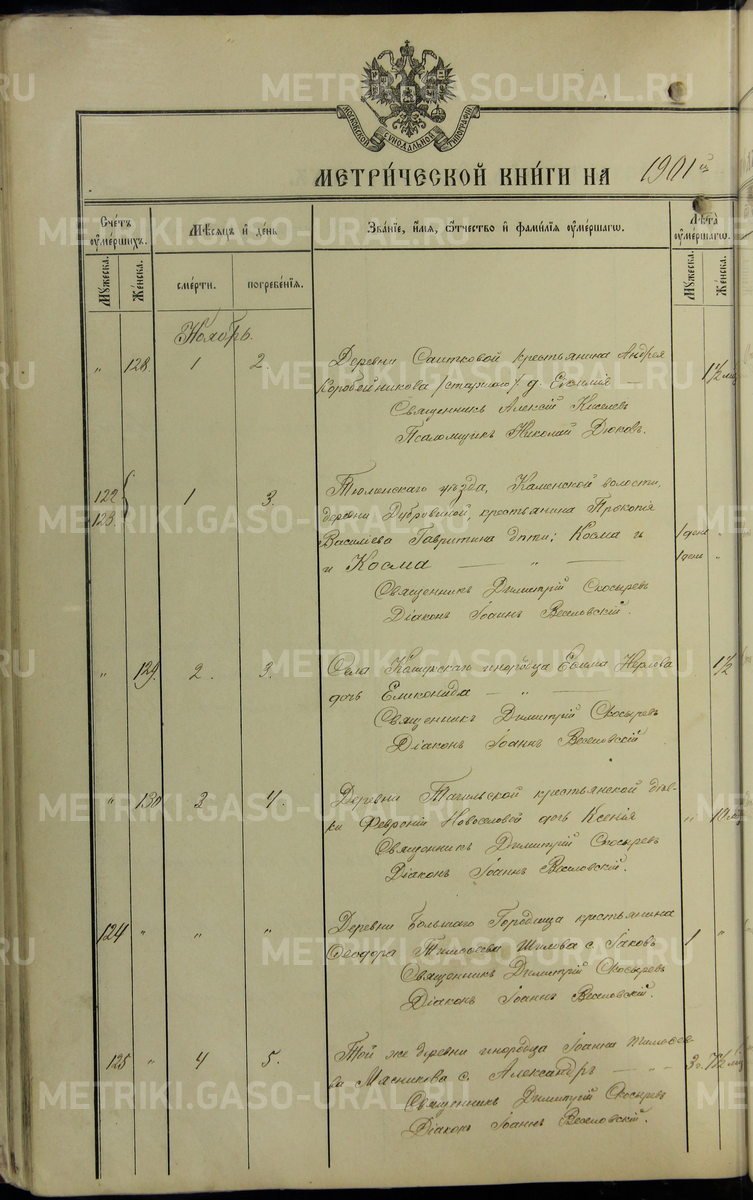 METRIKI.GASO-URAL.RU
МОСКОВСКОЙ СѴНОДАЛЬНОЙ ТИПОГРАФІИ
МЕТРИ́ЧЕСКОЙ КНИ́ГИ НА 1901 й
Сче́тъ ᲂу҆ме́ршихъ.
Мꙋ́жеска.
Же́нска.
Мѣ́сѧцъ и҆ де́нь
сме́рти.
погребе́нїѧ.
Зва́нїе, и҆́мѧ, ѻ҆́тчество и҆ фами́лїѧ ᲂу҆ме́ршагѡ.
Лѣ́та ᲂу҆ме́ршагѡ.
Мꙋ́жеска.
Же́нска.
Ноябрь.
„ 128 1 2. Деревни Саитковой крестьянина Андрея 1½ мц
Коробейникова /старшаго/ д. Евѳимія —
Священникъ Алексій Киселевъ
Псаломщикъ Николай Дюковъ.
122 123. 1 3. Тюменскаго уѣзда, Каменской волости,
деревни Дубровиной, крестьянина Прокопія
Василіева Гавритина дѣти: Косма и 1 день „
и Косма — „ — 1 день „
Священникъ Димитрій Скосыревъ
Діаконъ Іоаннъ Веселовскій.
„ 129. 2. 3. Села инородца Ефима 1½
дочь Еликонида — „ —
Священникъ Димитрій Скосыревъ
Діаконъ Іоаннъ Веселовскій
„ 130 3 4. Деревни Тагильской крестьянской дѣв-
ки Февроніи Новоселовой дочь Ксенія „ 10 мц
Священникъ Димитрій Скосыревъ
Діаконъ Іоаннъ Веселовскій.
124 „ „ „ Деревни Большаго Городища крестьянина
Ѳеодора Тимоѳеева Шилова с. Іаковъ 1 „
Священникъ Димитрій Скосыревъ
Діаконъ Іоаннъ Веселовскій.
125 „ 4 5. Той же деревни инородца Іоанна Тимоѳее-
ва Мясникова с. Александръ — „ — 3 г. 7½ мц
Священникъ Димитрій Скосыревъ
Діаконъ Іоаннъ Веселовскій.